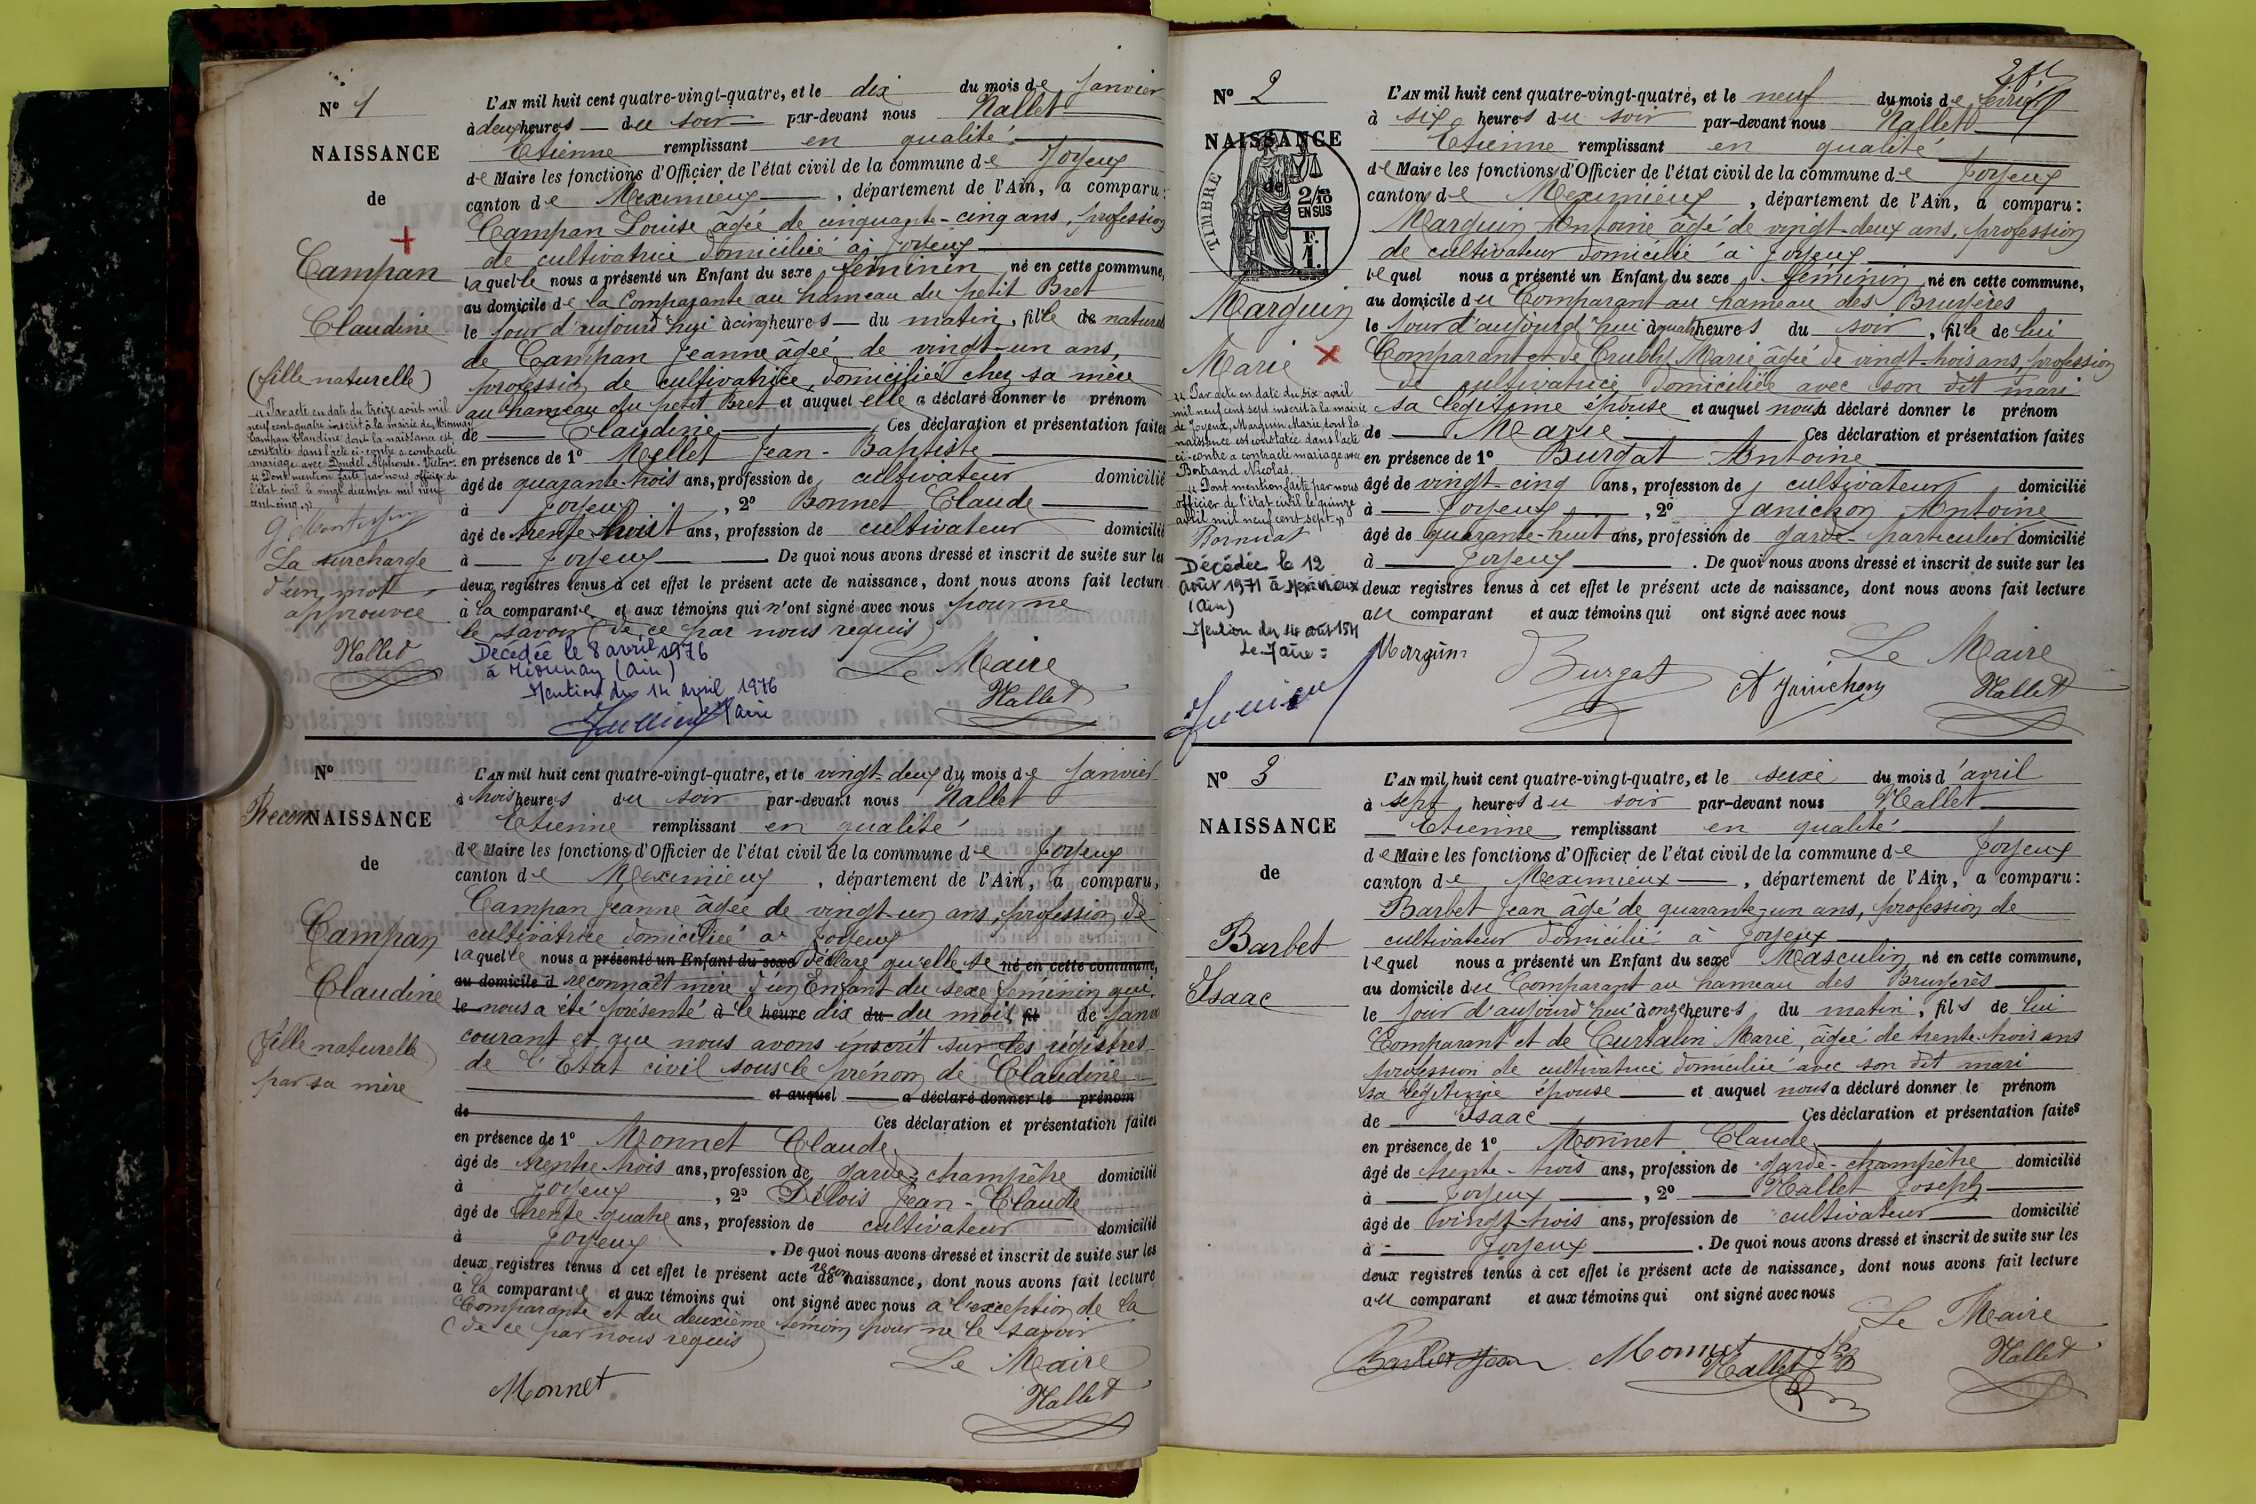 N° 1
NAISSANCE
de
Campan
Claudine
(fille naturelle)
" Par acte en date du treize août mil
neuf cent quatre inscrit à la mairie de Mionnay
Campan Claudine dont la naissance est
constatée dans l'acte ci-contre a contracté
mariage avec Doudet Alphonse-Victor.
" Dont mention faite par nous officier de
l'état civil le vingt décembre mil neuf
cent cinq. "
La surcharge
d'un mot
approuvée
Nallet
L'AN mil huit cent quatre-vingt-quatre, et le dix du mois de Janvier
à deux heures du soir par-devant nous Nallet
Etienne remplissant en qualité
de Maire les fonctions d'Officier de l'état civil de la commune de Joyeux
canton de Meximieux, département de l'Ain, a comparu:
Campan Louise âgée de cinquante-cinq ans, profession
de cultivatrice domiciliée à Joyeux
laquelle nous a présenté un Enfant du sexe féminin né en cette commune,
au domicile de la Comparante au hameau du petit Bret
le jour d'aujourd'hui à cinq heures du matin, fille de naturelle
de Campan Jeanne âgée de vingt-un ans,
profession de cultivatrice, domiciliée chez sa mère
au hameau du petit Bret et auquel elle a déclaré donner le prénom
de Claudine, Ces déclaration et présentation faites
en présence de 1° Mellet Jean-Baptiste
âgé de quarante-trois ans, profession de cultivateur domicilié
à Joyeux, 2° Bonnet Claude
âgé de trente-huit ans, profession de cultivateur domicilié
à Joyeux De quoi nous avons dressé et inscrit de suite sur les
deux registres tenus à cet effet le présent acte de naissance, dont nous avons fait lecture
à la comparante et aux témoins qui n'ont signé avec nous pour ne
le savoir (de ce par nous requis)
Décédée le 8 avril 1976
à Mionnay (Ain)
Mention du 14 avril 1976
Le Maire
Nallet
N°
Recon NAISSANCE
de
Campan
Claudine
(fille naturelle)
par sa mère
L'AN mil huit cent quatre-vingt-quatre, et le vingt-deux du mois de Janvier
à trois heures du soir par-devant nous Nallet
Etienne remplissant en qualité
de Maire les fonctions d'Officier de l'état civil de la commune de Joyeux
canton de Meximieux, département de l'Ain, a comparu,
Campan Jeanne âgée de vingt-un ans, profession de
cultivatrice domiciliée à Joyeux
laquelle nous a présenté un Enfant du sexe déclaré qu'elle se né en cette commune,
au domicile d reconnaît mère d'un Enfant du sexe féminin qui
le nous a été présenté à le heure dix du du mois fil de Janv
courant et que nous avons inscrit sur les régistres
de l'Etat civil sous le prénom de Claudine
et auquel a déclaré donner le prénom
de Ces déclaration et présentation faites
en présence de 1° Monnet Claude
âgé de trente-trois ans, profession de garde-champêtre domicilié
à Joyeux, 2° Délois Jean-Claude
âgé de trente-quatre ans, profession de cultivateur domicilié
à Joyeux. De quoi nous avons dressé et inscrit de suite sur les
deux registres tenus à cet effet le présent acte de reconnaissance, dont nous avons fait lecture
à la comparante et aux témoins qui ont signé avec nous à l'exception de la
Comparante et du deuxième témoin pour ne le savoir
(de ce par nous requis)
Le Maire
Monnet
Nallet
N° 2
NAISSANCE
de
TIMBRE
2/10
EN SUS
F.
1.
Marguin
Marie
" Par acte en date du six avril
mil neuf cent sept inscrit à la mairie
de Joyeux, Marguin Marie dont la
naissance est constatée dans l'acte
ci-contre a contracté mariage avec
Bertrand Nicolas.
" Dont mention faite par nous
officier de l'état civil le quinze
avril mil neuf cent sept. "
Décédée le 12
Août 1971 à
(Ain)
Le Maire:
L'AN mil huit cent quatre-vingt-quatre, et le neuf du mois de
à six heures du soir par-devant nous Nallet
Etienne remplissant en qualité
de Maire les fonctions d'Officier de l'état civil de la commune de Joyeux
canton de Meximieux, département de l'Ain, a comparu:
Marguin Antoine âgé de vingt-deux ans, profession
de cultivateur domicilié à Joyeux
lequel nous a présenté un Enfant du sexe féminin né en cette commune,
au domicile du Comparant au hameau des Bruyères
le jour d'aujourd'hui à quatre heures du soir, fille de lui
Comparant et de Marie âgée de vingt-trois ans, profession
de cultivatrice domiciliée avec son dit mari
sa légitime épouse et auquel nous a déclaré donner le prénom
de Marie Ces déclaration et présentation faites
en présence de 1° Burgat Antoine
âgé de vingt-cinq ans, profession de cultivateur domicilié
à Joyeux, 2° Janichon Antoine
âgé de quarante-huit ans, profession de garde-particulier domicilié
à Joyeux. De quoi nous avons dressé et inscrit de suite sur les
deux registres tenus à cet effet le présent acte de naissance, dont nous avons fait lecture
au comparant et aux témoins qui ont signé avec nous
Le Maire
Marguin
Burgat
A Janichon
Nallet
N° 3
NAISSANCE
de
Barbet
Isaac
L'AN mil huit cent quatre-vingt-quatre, et le seize du mois d'avril
à sept heures du soir par-devant nous Nallet
Etienne remplissant en qualité
de Maire les fonctions d'Officier de l'état civil de la commune de Joyeux
canton de Meximieux, département de l'Ain, a comparu:
Barbet Jean âgé de quarante-un ans, profession de
cultivateur domicilié à Joyeux
lequel nous a présenté un Enfant du sexe Masculin né en cette commune,
au domicile du Comparant au hameau des Bruyères
le jour d'aujourd'hui à onze heures du matin, fils de lui
Comparant et de Curtalin Marie, âgée de trente-trois ans
profession de cultivatrice domiciliée avec son dit mari
sa légitime épouse et auquel nous a déclaré donner le prénom
de Isaac Ces déclaration et présentation faites
en présence de 1° Monnet Claude
âgé de trente-trois ans, profession de garde-champêtre domicilié
à Joyeux, 2° Nallet Joseph
âgé de vingt-trois ans, profession de cultivateur domicilié
à Joyeux. De quoi nous avons dressé et inscrit de suite sur les
deux registres tenus à cet effet le présent acte de naissance, dont nous avons fait lecture
au comparant et aux témoins qui ont signé avec nous
Le Maire
Barbet Jean
Monnet
Nallet
Nallet